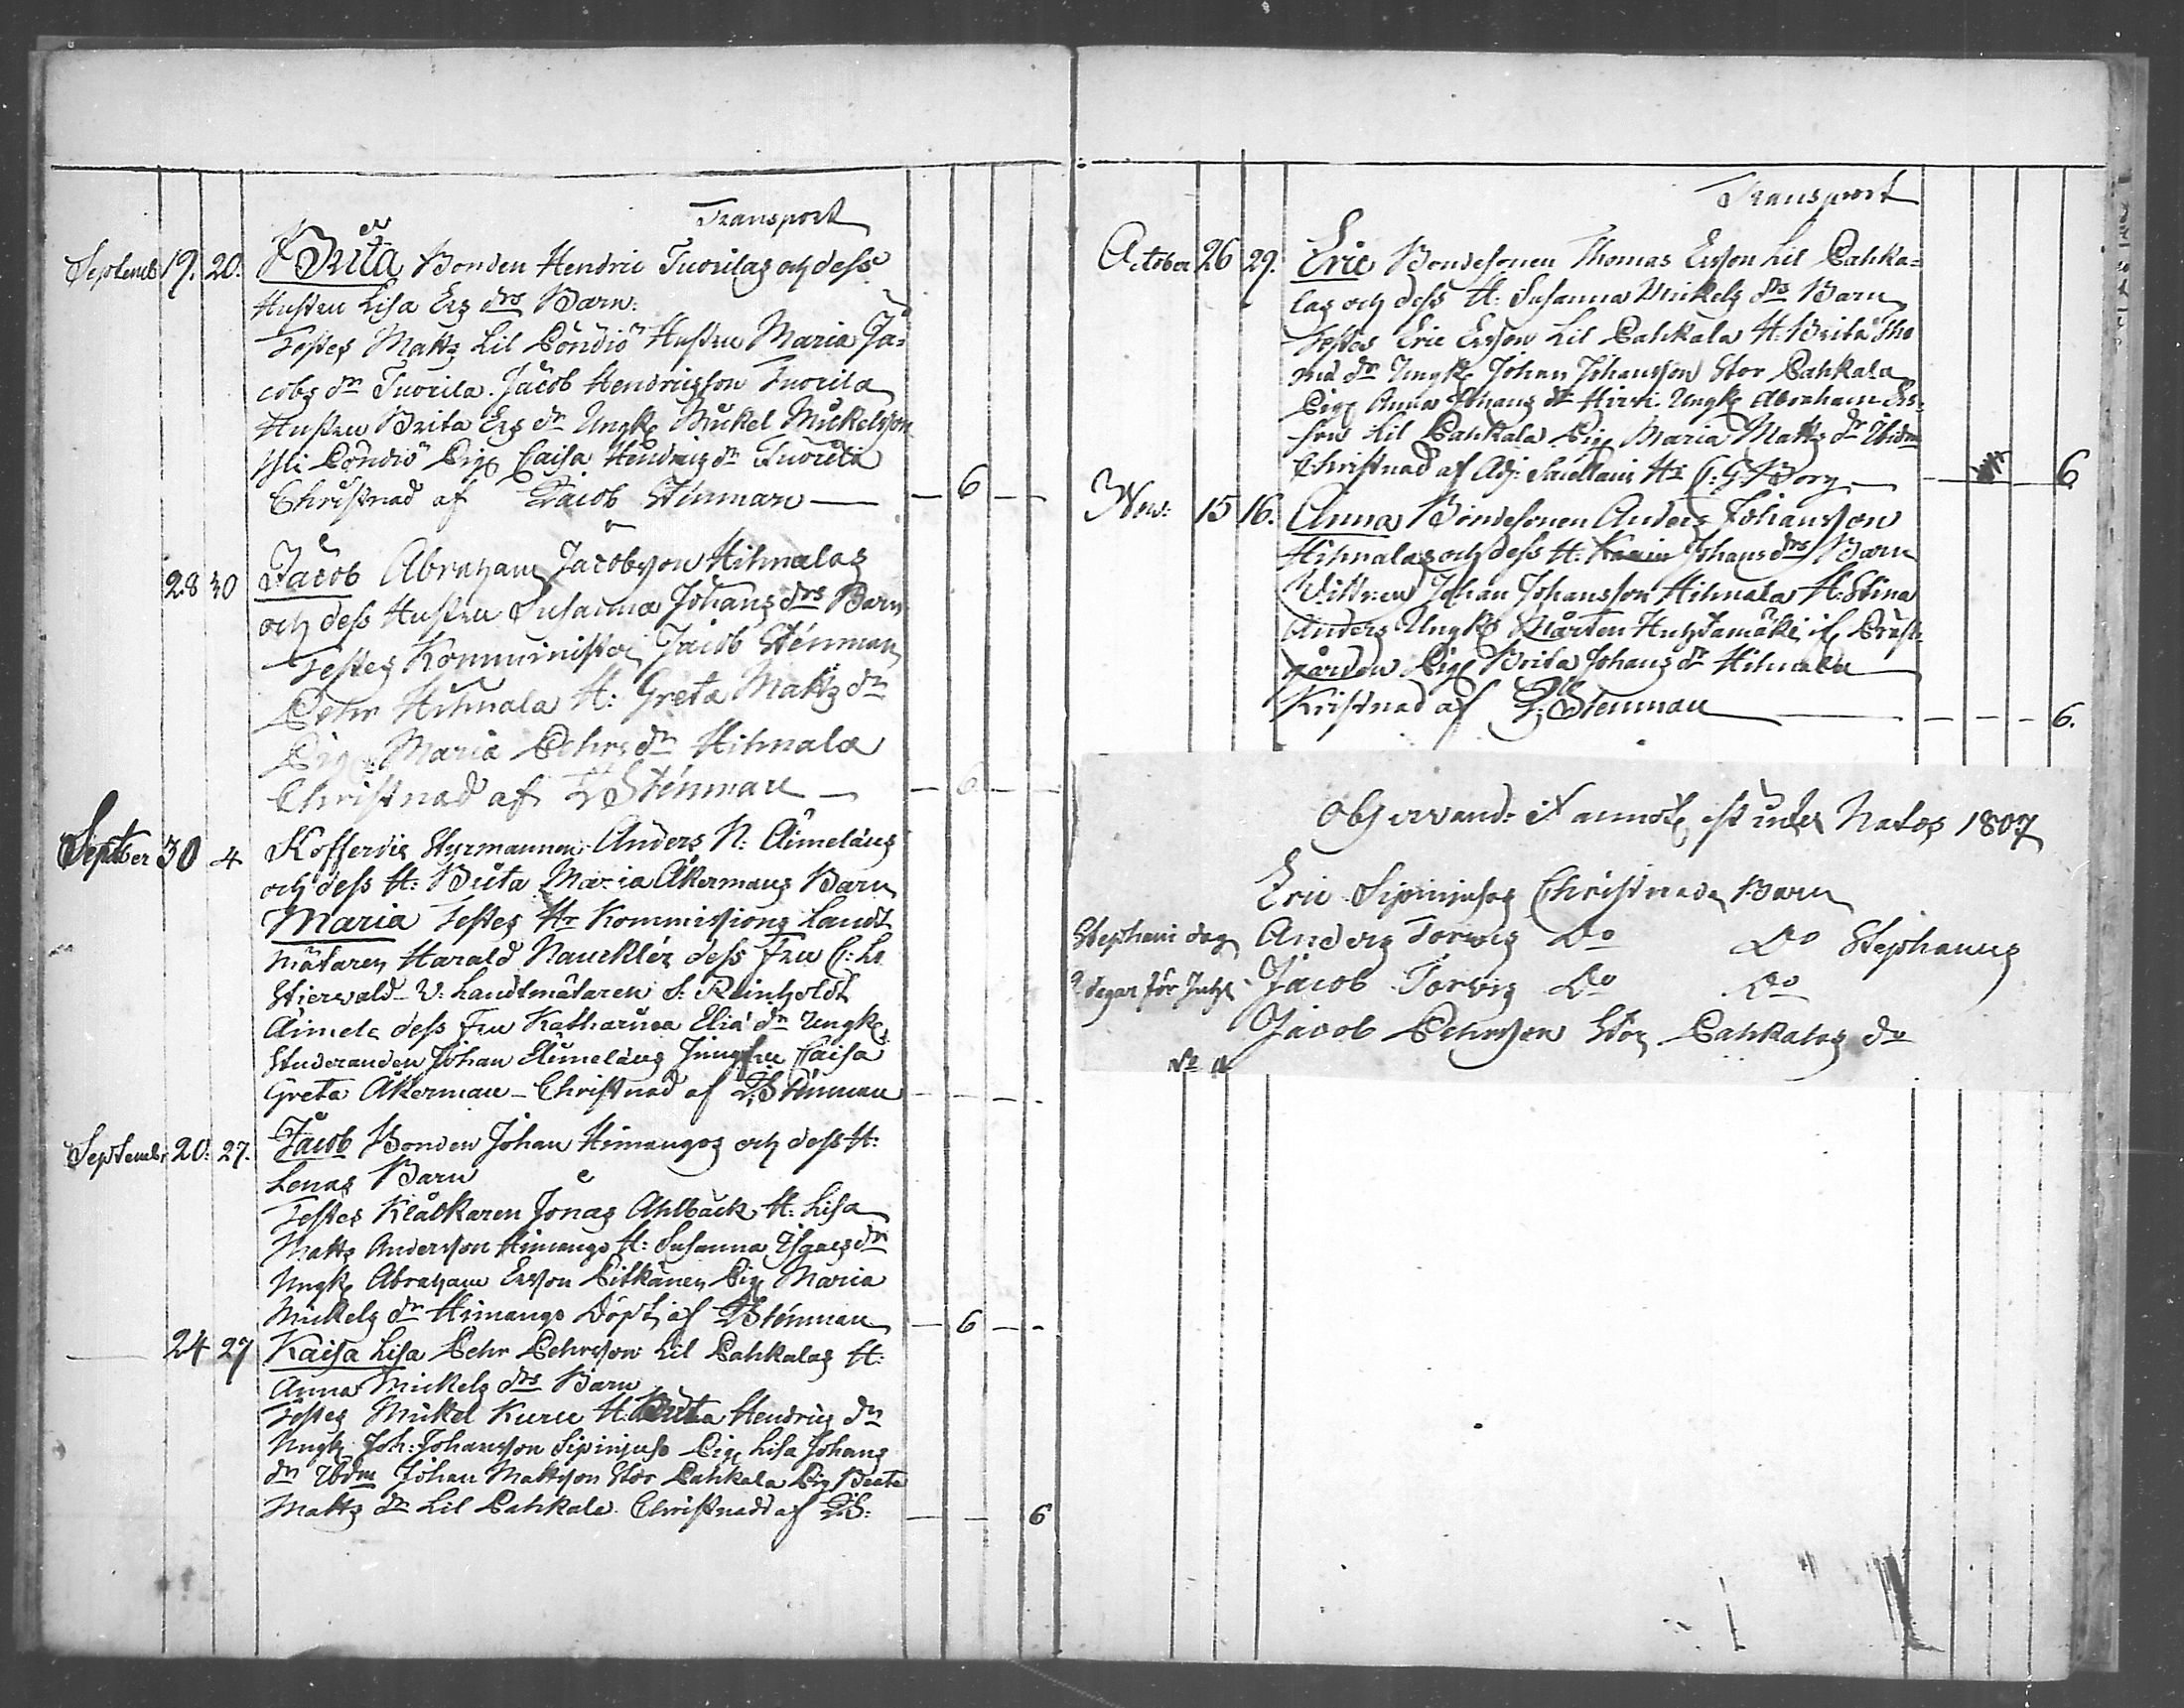 Transport
Septemb 19. 20. Brita Bonden Hendric Tuorilas och dess
Hustru Lisa Ers drs Barn:
Testes Matts Lil Pöndiö Hustru Maria Ja=
cobs dr Tuorila. Jacob Hendricsson Tuorila
Hustru Brita Ers dr Ungk Mickel Mickelsson
Pöndiö Pig Caisa Hendrics dr Tuorila
Christnad af Jacob Stenman — 6 —
28 30 Jacob Abraham Jacobsson Hihnalas
och dess Hustru Susanna Johans drs Barn
Testes Komminister Jacob Stenman
Pehr Hihnala H: Greta Matts dr
Pig Maria Pehrs dr Hihnala
Christnad af J Stenman — 6
September 30 4 Kofferdie Styrmannen Anders N: Aimeläus
och dess H: Brita Maria Åkermans Barn
Maria Testes Hr Kommissions Landt
mätaren Harald Naucklér dess Fru C: Ls
Stierwald V: Landtmätaren S: Reinholdt
Aimele dess Fru Katharina Elia dr Ungk
Studeranden Johan Aimeläus Jungfru Caisa
Greta Åkerman – Christnad af J. Stenman
Septemb: 20: 27. Jacob Bonden Johan Himangos och dess H:
Lenas Barn
Testes Klåckaren Jonas Ahlbäck H: Lisa
Matts Andersson Himango H: Susanna Isaacs dr
Ungk Abraham Ersson Pitkänen Pig Maria
Mickels dr Himango Döpt af J Stenman — 6 —
24 27 Kaisa Lisa Pehr Pehrsson Lil Pahkalas H:
Anna Mickels drs Barn
Testes Mickel Kuru H: Brita Hendrics dr
Ungk Joh: Johansson Sipinjuso Pig Lisa Johans
dr Ibdm Johan Mattsson Stor Pahkala Pig Beata
Matts dr Lil Pahkala. Christnadt af J:S: — 6
Transport
October 26 29. Eric Bondesonen Thomas Ersson Lil Pahka=
las och dess H: Susanna Mickels drs Barn
Testes Eric Ersson Lil Pahkala H: Brita Tho
mæ dr Ungk Johan Johansson Stor Pahkala
Pig Anna Johans dr Hirvi. Ungk Abraham Ers=
son Lil Pahkala Pig Maria Matts dr Ibidm
Christnad af Adj: Hr C: G: Borg — 6
Nov: 15 16. Anna Bondesonen Anders Johansson
Hihnalas och dess H: Karin Johans drs Barn
Vittnen Johan Johansson Hihnala H: Stina
Anders Ungk Mårten Huhtamäki if Präst
gården Pig Brita Johans dr Hihnala
Kristnad af J; Stenman — 6.
Observand: et annot est inter Natos 1807
Eric Sipinjusos Christnade Barn
Stephani dag Anders Torvis Do Do Stephanus
2 dagar för Juhl Jacob Torvis Do Do
Jacob Pehrsson Stor Pahkalas do